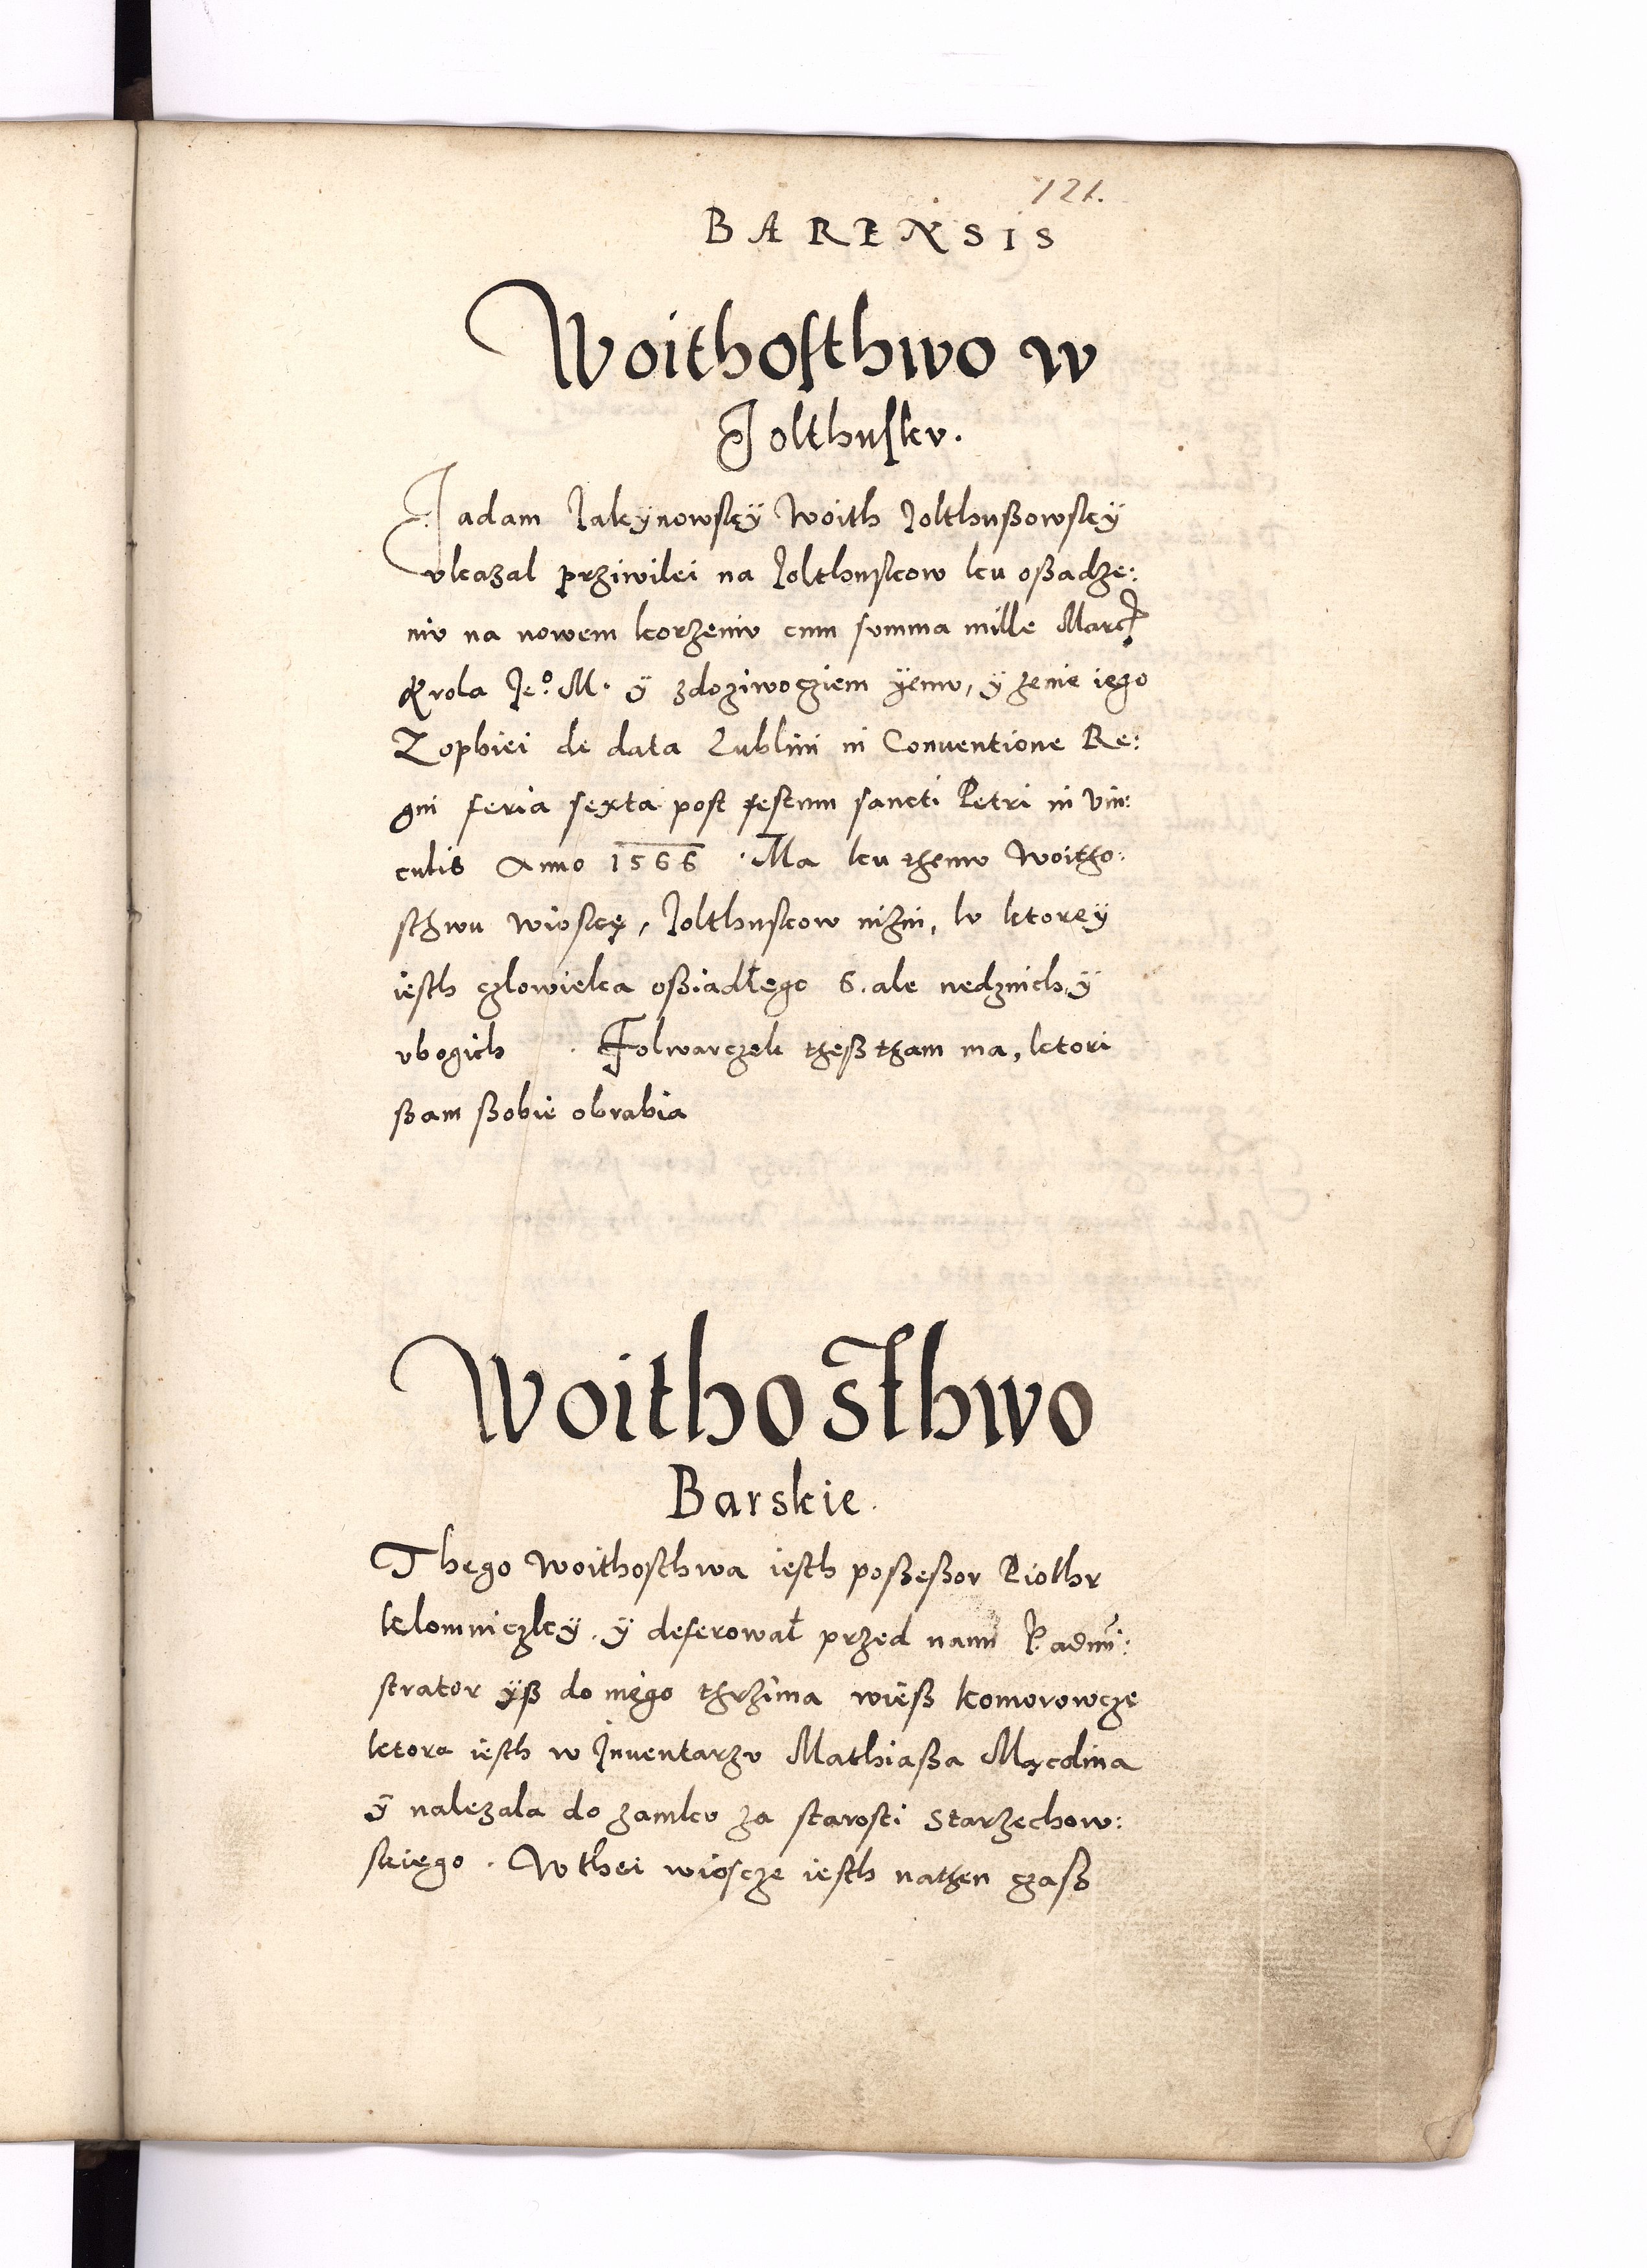 121.
BARENSIS
Woithosthwo w
Jolthuskv.
Jadam Jakÿnowskÿ Woith Jolthußowskÿ
vkazal prziwilei na Jolthuskow ku oßadze:
niv na nowem korzeniv cum summa mille Marc
Krola Je° M. ÿ zdoziwocziem ÿemv, ÿ zenie iego
Zophiei de data Lublini in Conuentione Re:
gni feria sexta post festum sancti Petri in Vin:
culis Anno 1566. Ma ku themv Woitho:
sthwu wioskę, Jolthuskow nizni, w ktoreÿ
iesth czlowieka oßiadłego 6. ale nedznich, ÿ
vbogich. Folwarczek theß tham ma, ktori
ßam ßobie obrabia
Woithosthwo
Barskie.
Thego Woithosthwa iesth poßeßor Piothr
Klomniczkÿ. ÿ deferował przed nami P. admi:
strator ÿß do niego thrzima wieß Komorowcze
ktora iesth w Jnuentarzv Mathiaßa Mącdina
ÿ nalezala do zamkv za starosti Starzechow:
skiego. W thei wioscze iesth nathen czaß